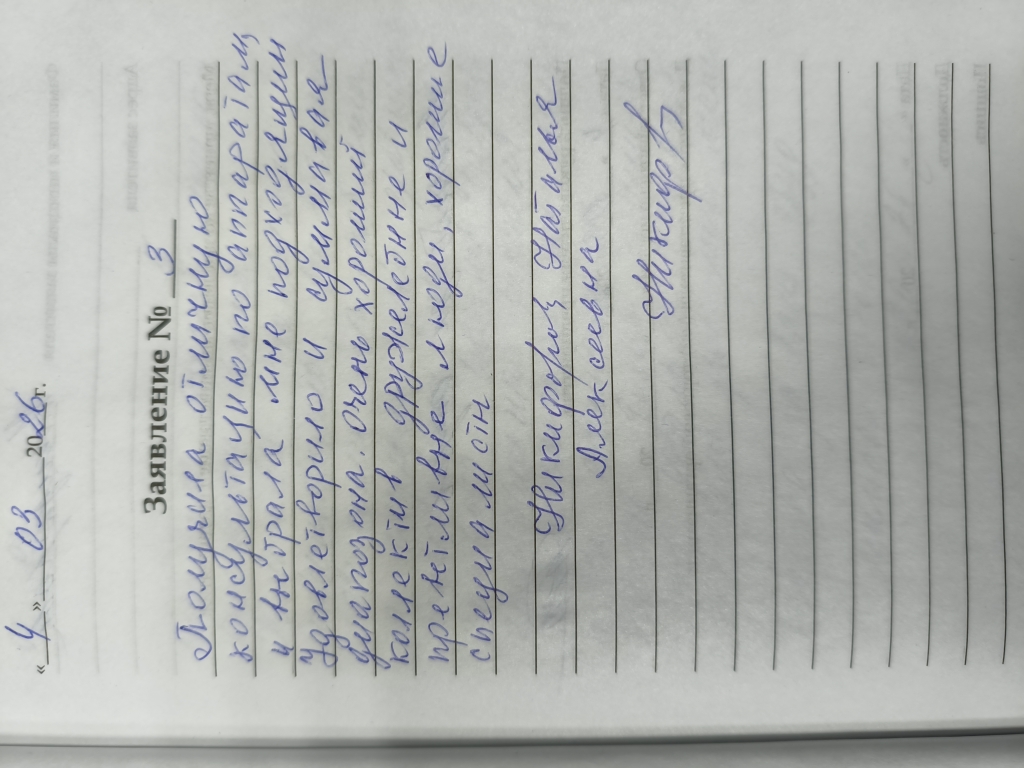 « 4 » 03 2026 г.
Заявление № 3
Получила отличную
консультацию по аппаратам
и выбрала мне подходящий
Удовлетворило и сумма
очень хороший
колектив дружелюбные и
преветливые люди, хорошие
специалисты
Никифорова Наталья
Алексеевна